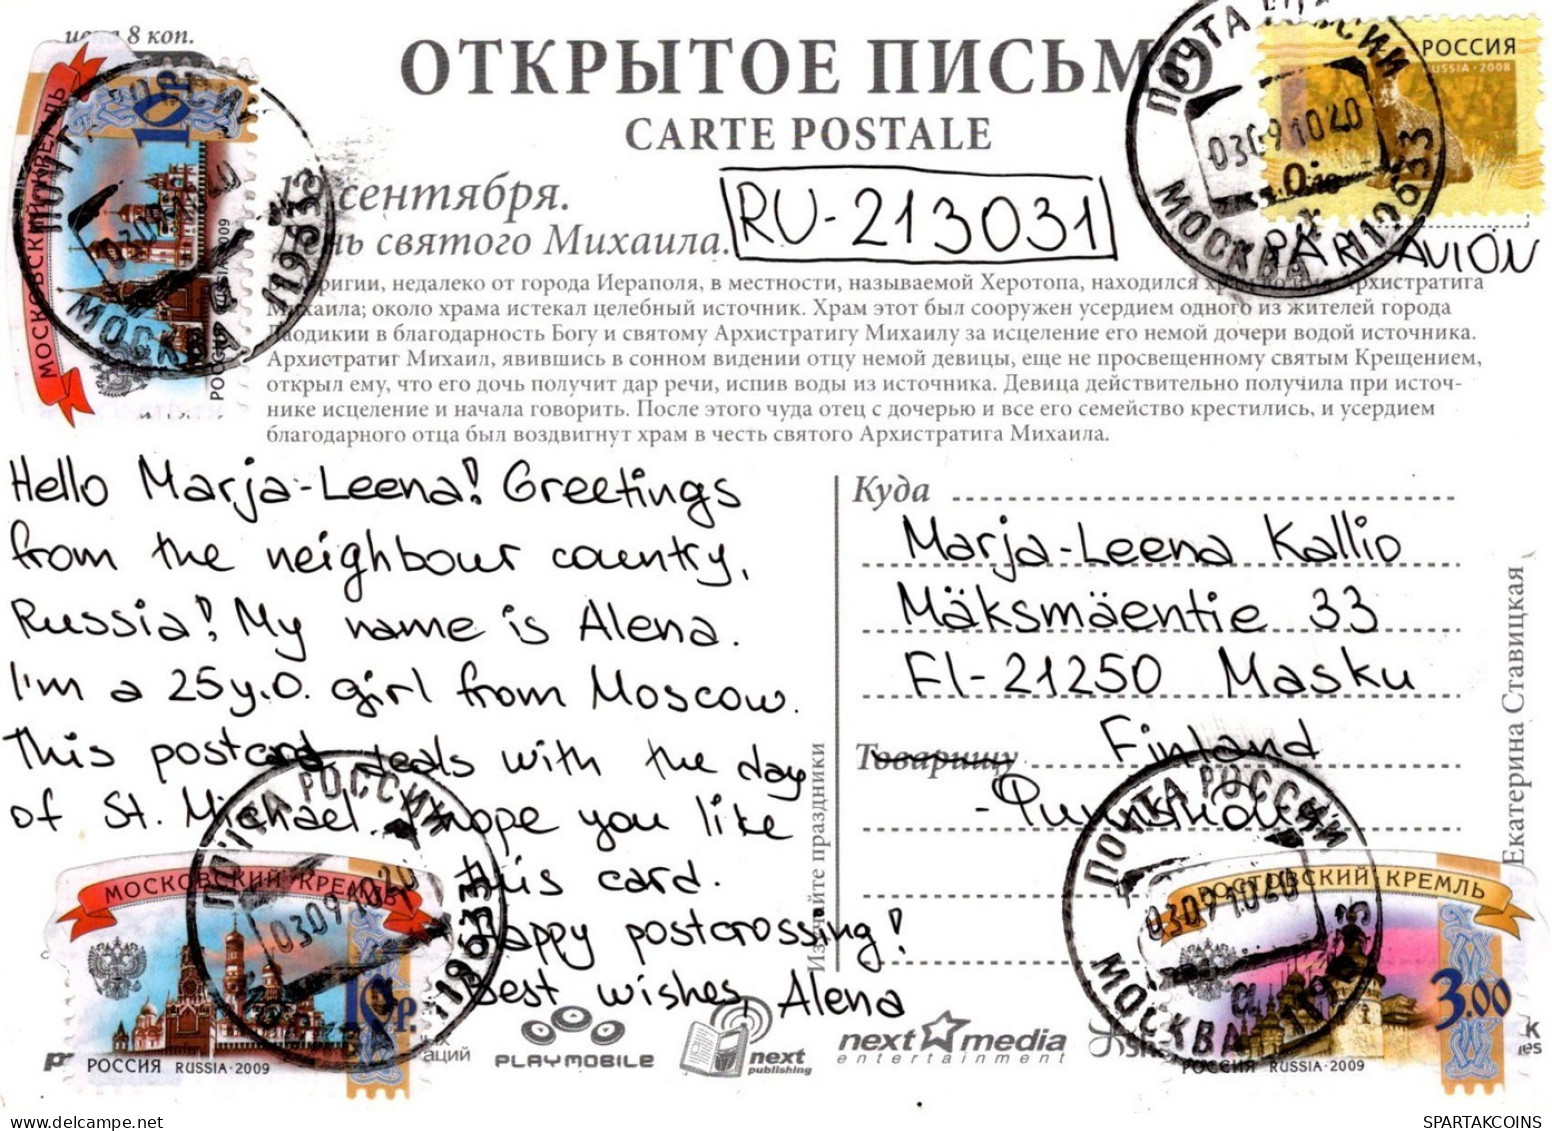 цена 8 коп.
ОТКРЫТОЕ ПИСЬМО
CARTE POSTALE
РОССИЯ
RUSSIA · 2008
ПОЧТА РОССИИ
МОСКВА
119633
PAR AVION
RU-213031
сентября.
святого Михаила.
МОСКОВСКИЙ КРЕМЛЬ
10р.
РОССИЯ RUSSIA · 2009
недалеко от города Иераполя, в местности, называемой Херотопа, находился
Михаила; около храма истекал целебный источник. Храм этот был сооружен усердием одного из жителей города
Лаодикии в благодарность Богу и святому Архистратигу Михаилу за исцеление его немой дочери водой источника.
Архистратиг Михаил, явившись в сонном видении отцу немой девицы, еще не просвещенному святым Крещением,
открыл ему, что его дочь получит дар речи, испив воды из источника. Девица действительно получила при источ-
нике исцеление и начала говорить. После этого чуда отец с дочерью и все его семейство крестились, и усердием
благодарного отца был воздвигнут храм в честь святого Архистратига Михаила.
Hello Marja-Leena! Greetings
from the neighbour country,
Russia! My name is Alena.
I'm a 25y.o. girl from Moscow.
This postcard deals with the day
of St. Michael. I hope you like
this card.
Happy postcrossing!
Best wishes, Alena
Куда
Marja-Leena Kallio
Mäksmäentie 33
FI-21250 Masku
Finland
Товарищу
Изучайте праздники
Екатерина Ставицкая
ПОЧТА РОССИИ
119633
МОСКОВСКИЙ КРЕМЛЬ
10р.
РОССИЯ RUSSIA · 2009
ПОЧТА РОССИИ
МОСКВА
РОСТОВСКИЙ КРЕМЛЬ
3.00
РОССИЯ RUSSIA · 2009
PLAYMOBILE
next publishing
next media
entertainment
SPARTAKCOINS